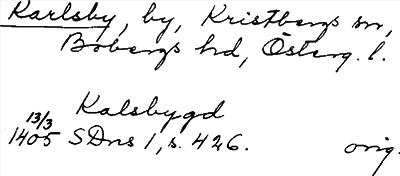 Karlsby, by, Kristbergs sn,
Bobergs hd, Österg. l.
Kalsbygd
13/3
1405 SDns 1, s. 426. orig.